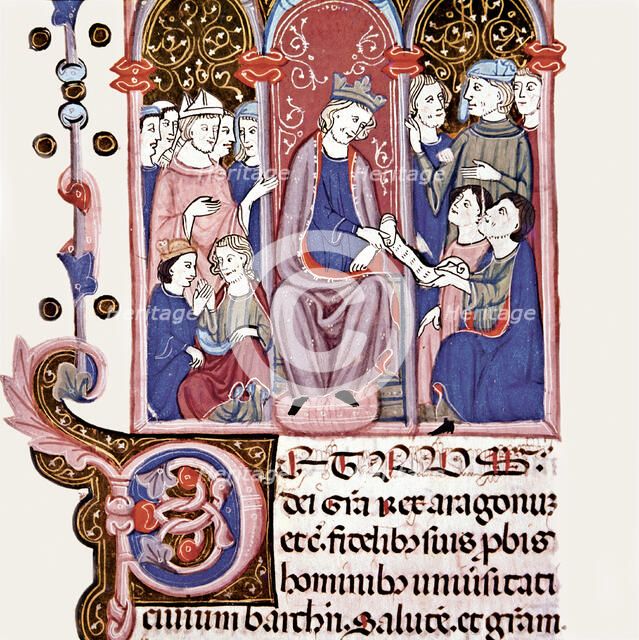 PETRUS:
dei gr̃a Rex aragonuꝫ
et c̃. fidelibꝰ suis ꝓbis
hominibꝰ uniũsitati
ciuium barch̃n. Salutẽ. et gr̃am.
Heritage
Heritage
Heritage
Heritage
Heritage
Heritage
Heritage